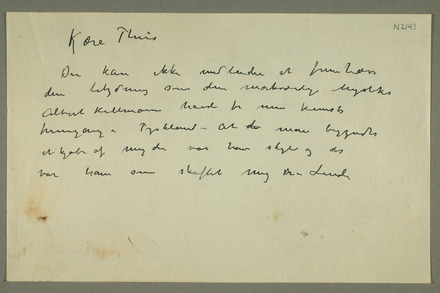 N2143
Kære Thiis
Du kan ikke undlade at fremhæve
den betydning som den mærkværdige mystiker
Albert Kollmann havde for min Kunsts
fremgang i Tyskland – at da man begyndte
at kjøbe af mig da var hans skyld og det
var ham som skaffet mig Dr. Linde